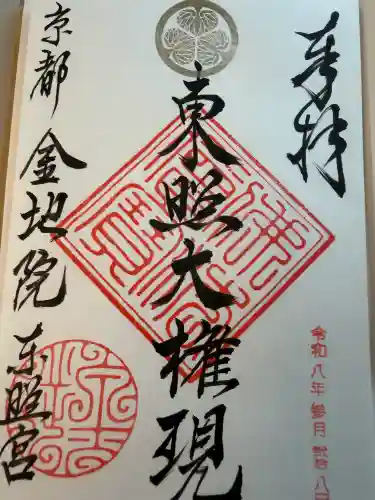 奉拝
東照大権現
京都 金地院 東照宮
令和八年参月